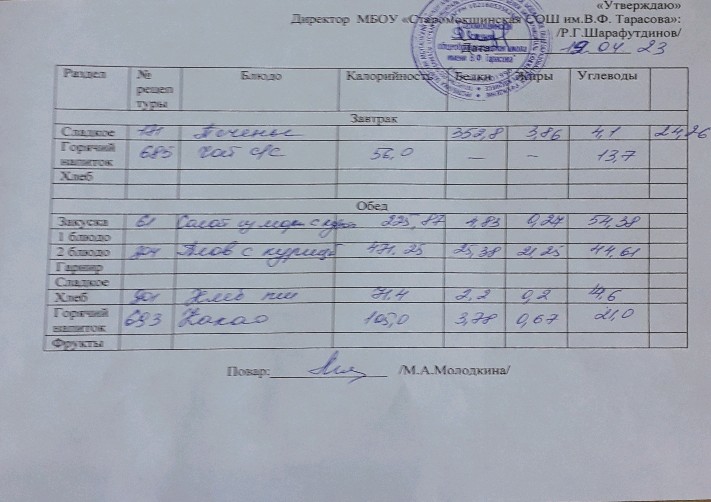 «Утверждаю»
Директор МБОУ «Старомокшинская СОШ им.В.Ф. Тарасова»:
/Р.Г.Шарафутдинов/
Дата: 19 04 23
Раздел № рецептуры Блюдо Калорийность Белки Жиры Углеводы
Завтрак
Сладкое Печенье 352,8 3,86 4,1
Горячий напиток 685 Чай с/с 56,0 — — 13,7
Хлеб
Обед
Закуска 61 Салат из морк с 225,87 0,27 54,38
1 блюдо
2 блюдо Плов с курицей 471,25 25,38 21 25 44,61
Гарнир
Сладкое
Хлеб Хлеб пш 71.4 2,2 0,2
Горячий напиток 693 Какао 105,0 3,78 0,67 21,0
Фрукты
Повар: /М.А.Молодкина/